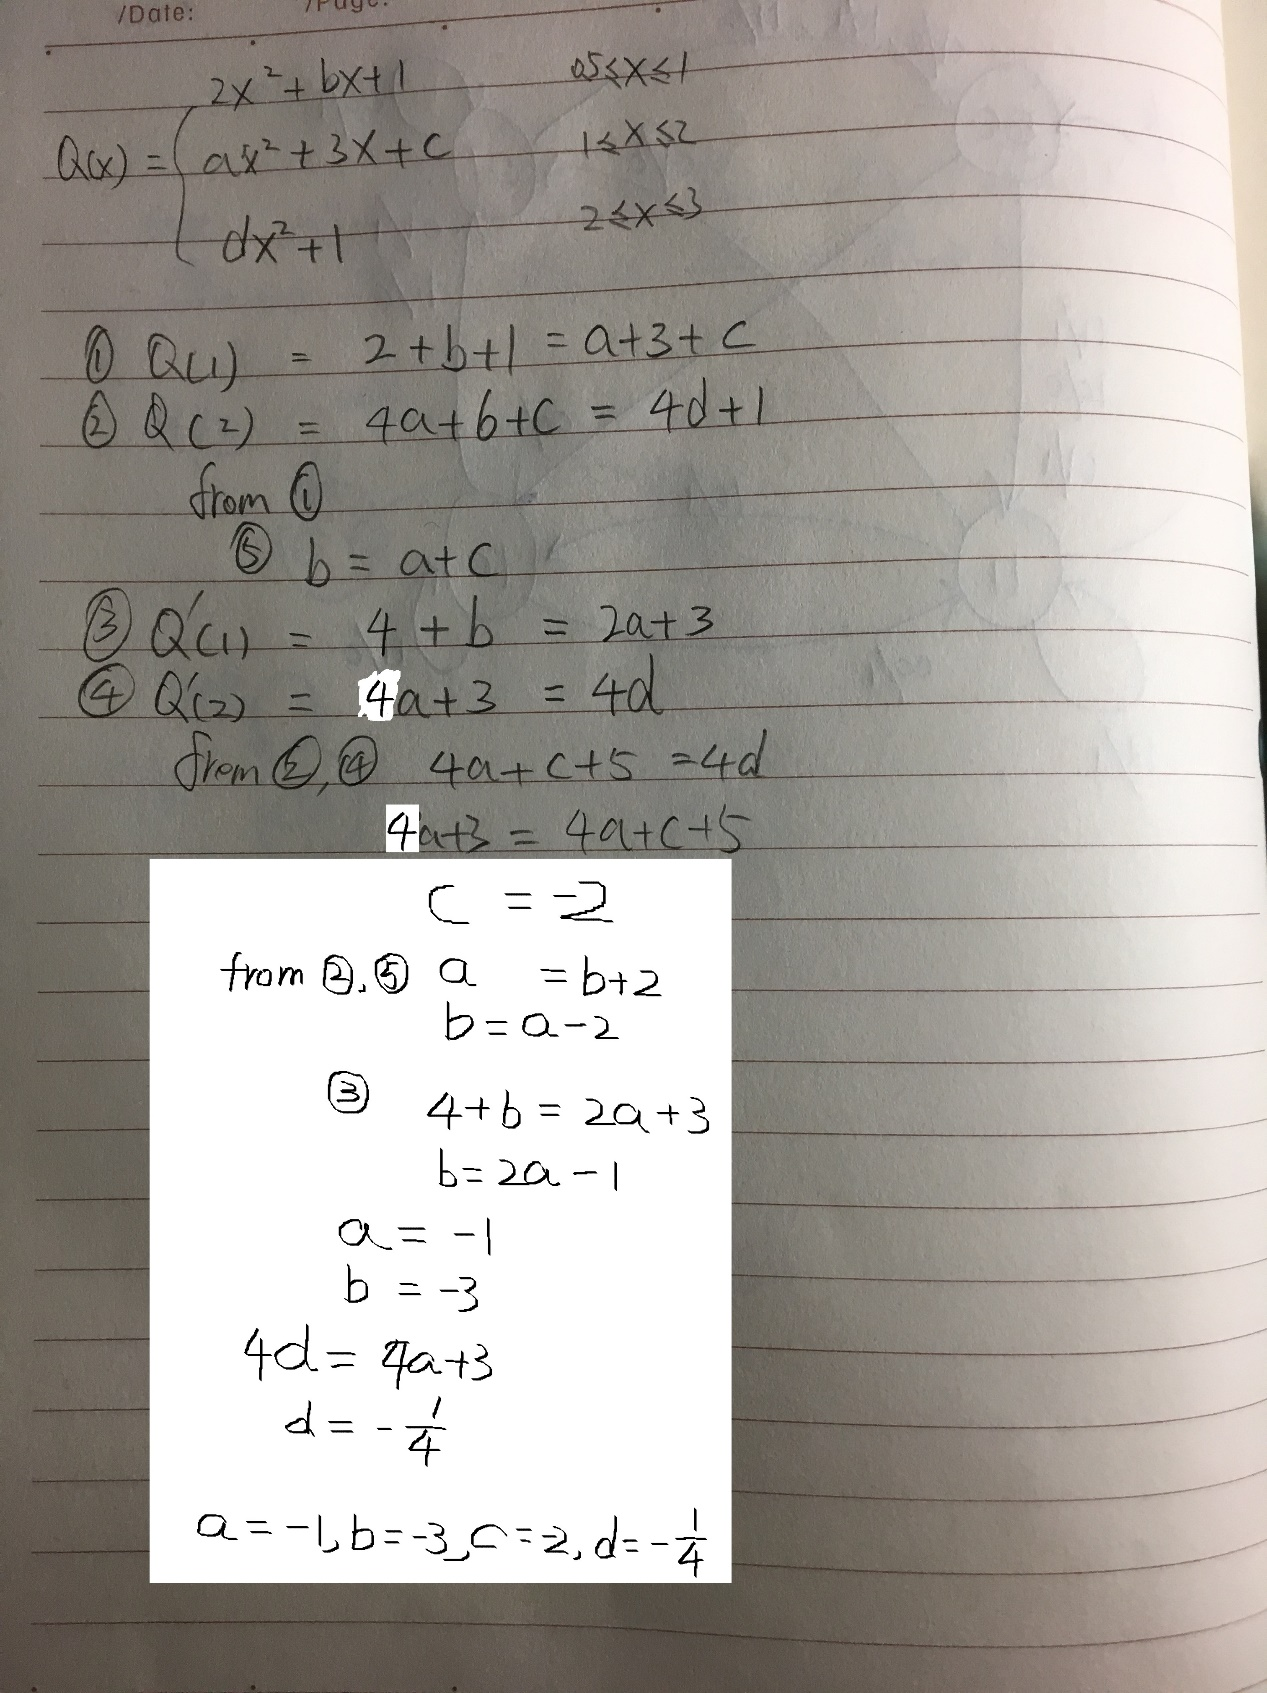 /Date: /Page:
2x²+bx+1 0.5≤x≤1
Q(x) = { ax²+3x+c 1≤x≤2
dx²+1 2≤x≤3
① Q(1) = 2+b+1 = a+3+c
② Q(2) = 4a+6+c = 4d+1
from ①
⑤ b = a+c
③ Q'(1) = 4+b = 2a+3
④ Q'(2) = 4a+3 = 4d
from ②,④ 4a+c+5 = 4d
4a+3 = 4a+c+5
c = -2
from ②,⑤ a = b+2
b = a-2
③ 4+b = 2a+3
b = 2a-1
a = -1
b = -3
4d = 4a+3
d = -1/4
a = -1, b = -3, c = -2, d = -1/4